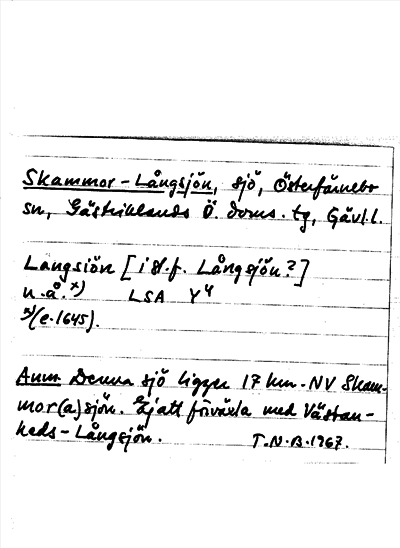 Skammor-Långsjön, sjö, Österfärnebo
sn, Gästriklands Ö. doms. tg, Gävl.l.
Langsiön [i st. f. Långsjön?]
u.å. x) LSA Y4
x)(e. 1645).
Anm. Denna sjö ligger 17 km. NV Skam-
mor(a)sjön. Ej att förväxla med Västan-
heds-Långsjön. T.N.B. 1967.